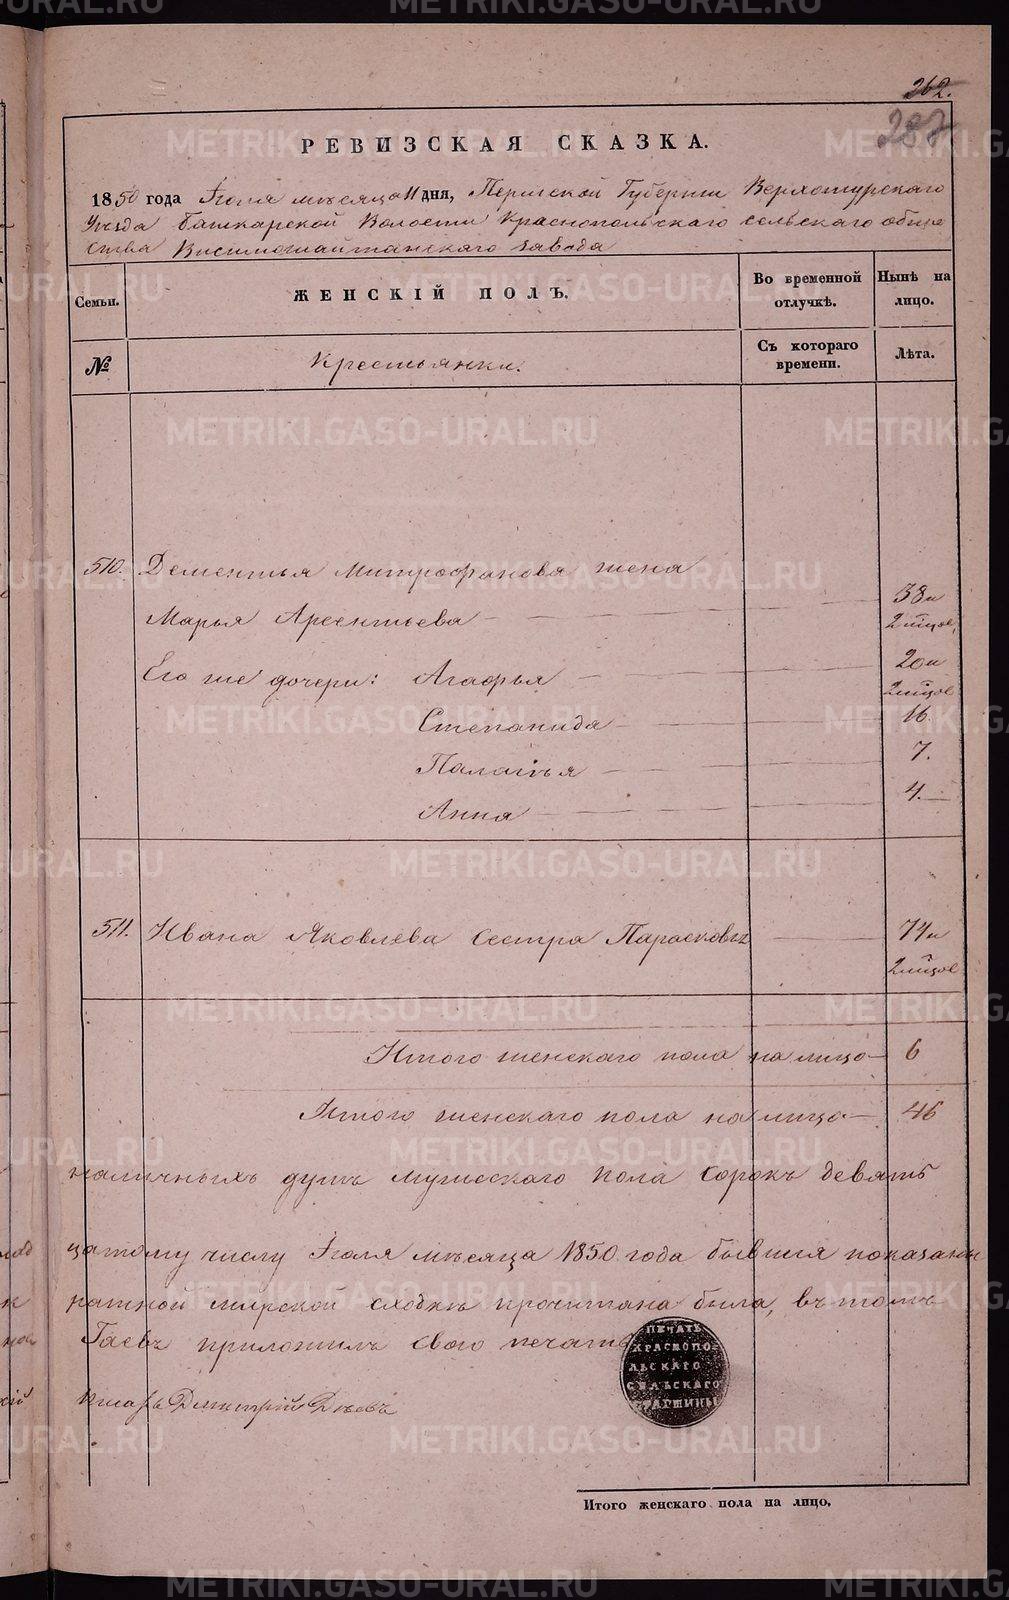 262.
287
РЕВИЗСКАЯ СКАЗКА.
1850 года Іюля мѣсяца 11 дня, Пермской Губерніи Верхотурскаго
Уѣзда Башкарской Волости Краснопольскаго сельскаго обще
ства Висимошайтанскаго завода
Семьи.
ЖЕНСКІЙ ПОЛЪ.
Во временной отлучкѣ.
Нынѣ на лицо.
№
Крестьянки.
Съ котораго времени.
Лѣта.
510. Дементья Митрофанова жена
Марья Арсентьева 38 и
2 мѣсяц.
Его же дочери: Агафья 20 и
2 мѣсяц.
Степанида 16.
Палагѣя 7.
Анна 4.
511. Ивана Яковлева сестра Парасковья 74 и
2 мѣсяц.
Итого женскаго пола на лицо 6
Итого женскаго пола на лицо 46
наличныхъ душъ мужескаго пола сорокъ девять
цатому числу Іюля мѣсяца 1850 года бывшія показаны
ратной мирской сходкѣ прочитана была, въ томъ
Гаевъ приложилъ свою печать
Писарь Дмитрій Дѣевъ
ПЕЧАТЬ
КРАСНОПО-
ЛЬСКАГО
СЕЛЬСКАГО
СТАРШИНЫ
Итого женскаго пола на лицо,
METRIKI.GASO-URAL.RU